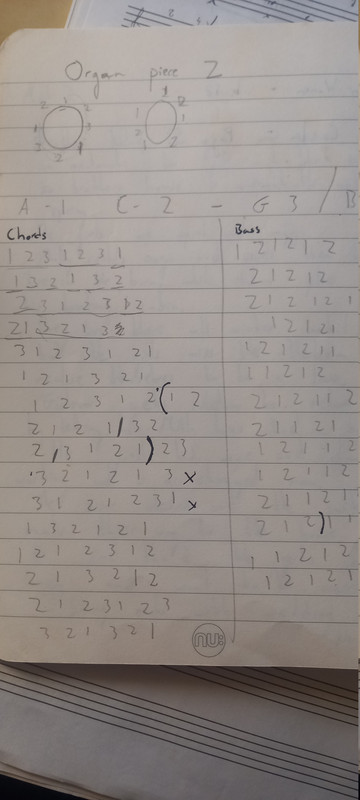 Organ piece 2
A - 1 C - 2 - G 3 / B
Chords Bass
1 2 3 1 2 3 1 1 2 1 2 1 2
1 3 2 1 3 2 2 1 2 1 2
2 3 1 2 3 1 2 2 1 2 1 2 1
2 1 3 2 1 3 1 2 1 2 1
3 1 2 3 1 2 1 1 2 1 2 1 1
1 2 1 3 2 1 1 1 2 1 2
1 2 3 1 2 ( 1 2 2 1 2 1 1 2
2 1 2 1 / 3 2 2 1 1 2 1
2 , 3 1 2 1 ) 2 3 1 2 1 1 2
3 2 1 2 1 3 x 1 2 1 1 2
3 1 2 1 2 3 1 x 2 1 1 2 1
1 3 2 1 2 1 2 1 2 ) 1 1
1 2 1 2 3 1 2 1 1 2 1 2
2 1 3 2 1 2 1 2 1 2 1
2 1 2 3 1 2 3
3 2 1 3 2 1
nu: